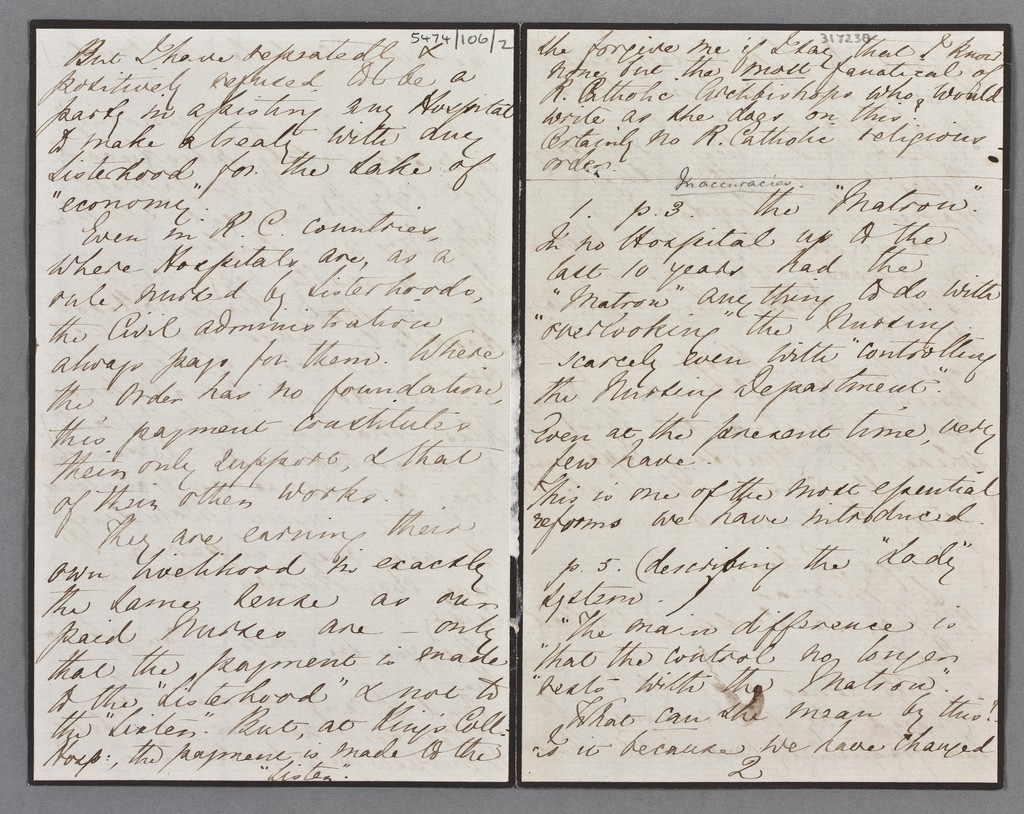 5474/106/2
But I have repeatedly &
positively refused to be a
party in assisting any Hospital
to make a treaty with any
Sisterhood for the sake of
"economy"
Even in R. C. countries,
where Hospitals are, as a
rule, nursed by Sisterhoods,
the Civil administration
always pays for them. Where
the Order has no foundation,
this payment constitutes
their only support, & that
of their other works.
They are earning their
own livelihood in exactly
the same sense as our
paid Nurses are - only
that the payment is made
to the "Sisterhood" & not to
the "Sister". But, at King's Coll:
Hosp:, the payment is made to the
"Sister".
317230
she forgive me if I say that I know
none but the most fanatical of
R. Catholic Archbishops who would
write as she does on this.
Certainly no R. Catholic religious
order.
Inaccuracies.
1. p. 3. the "Matron".
In no Hospital up to the
last 10 years had the
"Matron" anything to do with
"overlooking" the Nursing
- scarcely even with "controlling
the Nursing Department".
Even at the present time, very
few have.
This is one of the most essential
reforms we have introduced
p. 5. (describing the "Lady"
System.
"The main difference is
"that the control no longer
"rests with the Matron".
What can she mean by this?
Is it because we have changed
2